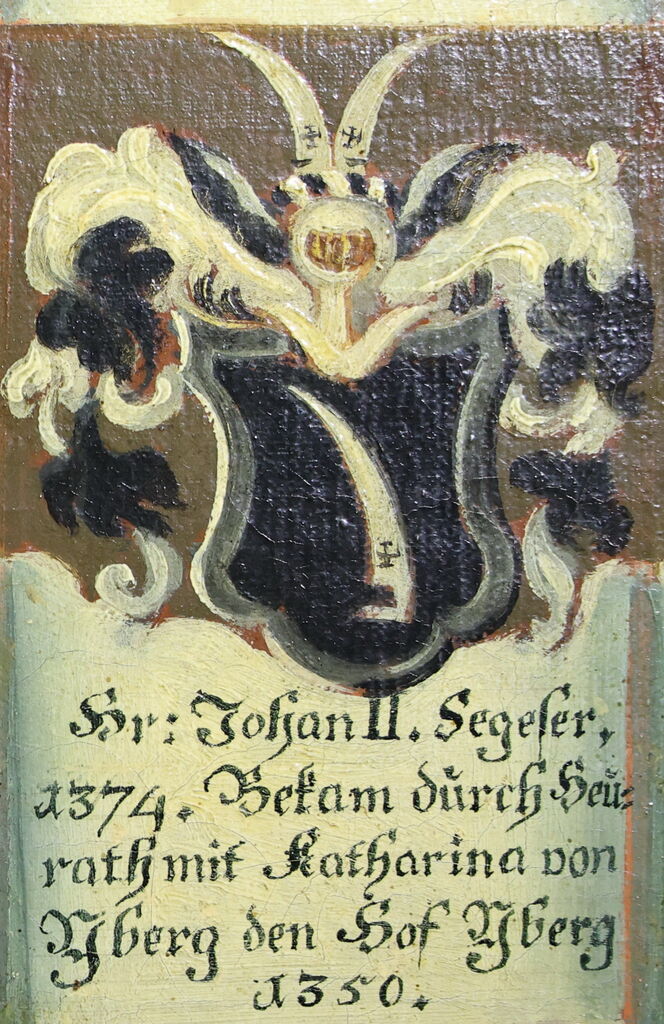 Hr: Johan II. Segeser,
1374. Bekam dŭrch Heŭ-
rath mit Katharina von
Yberg den Hof Yberg
1350.